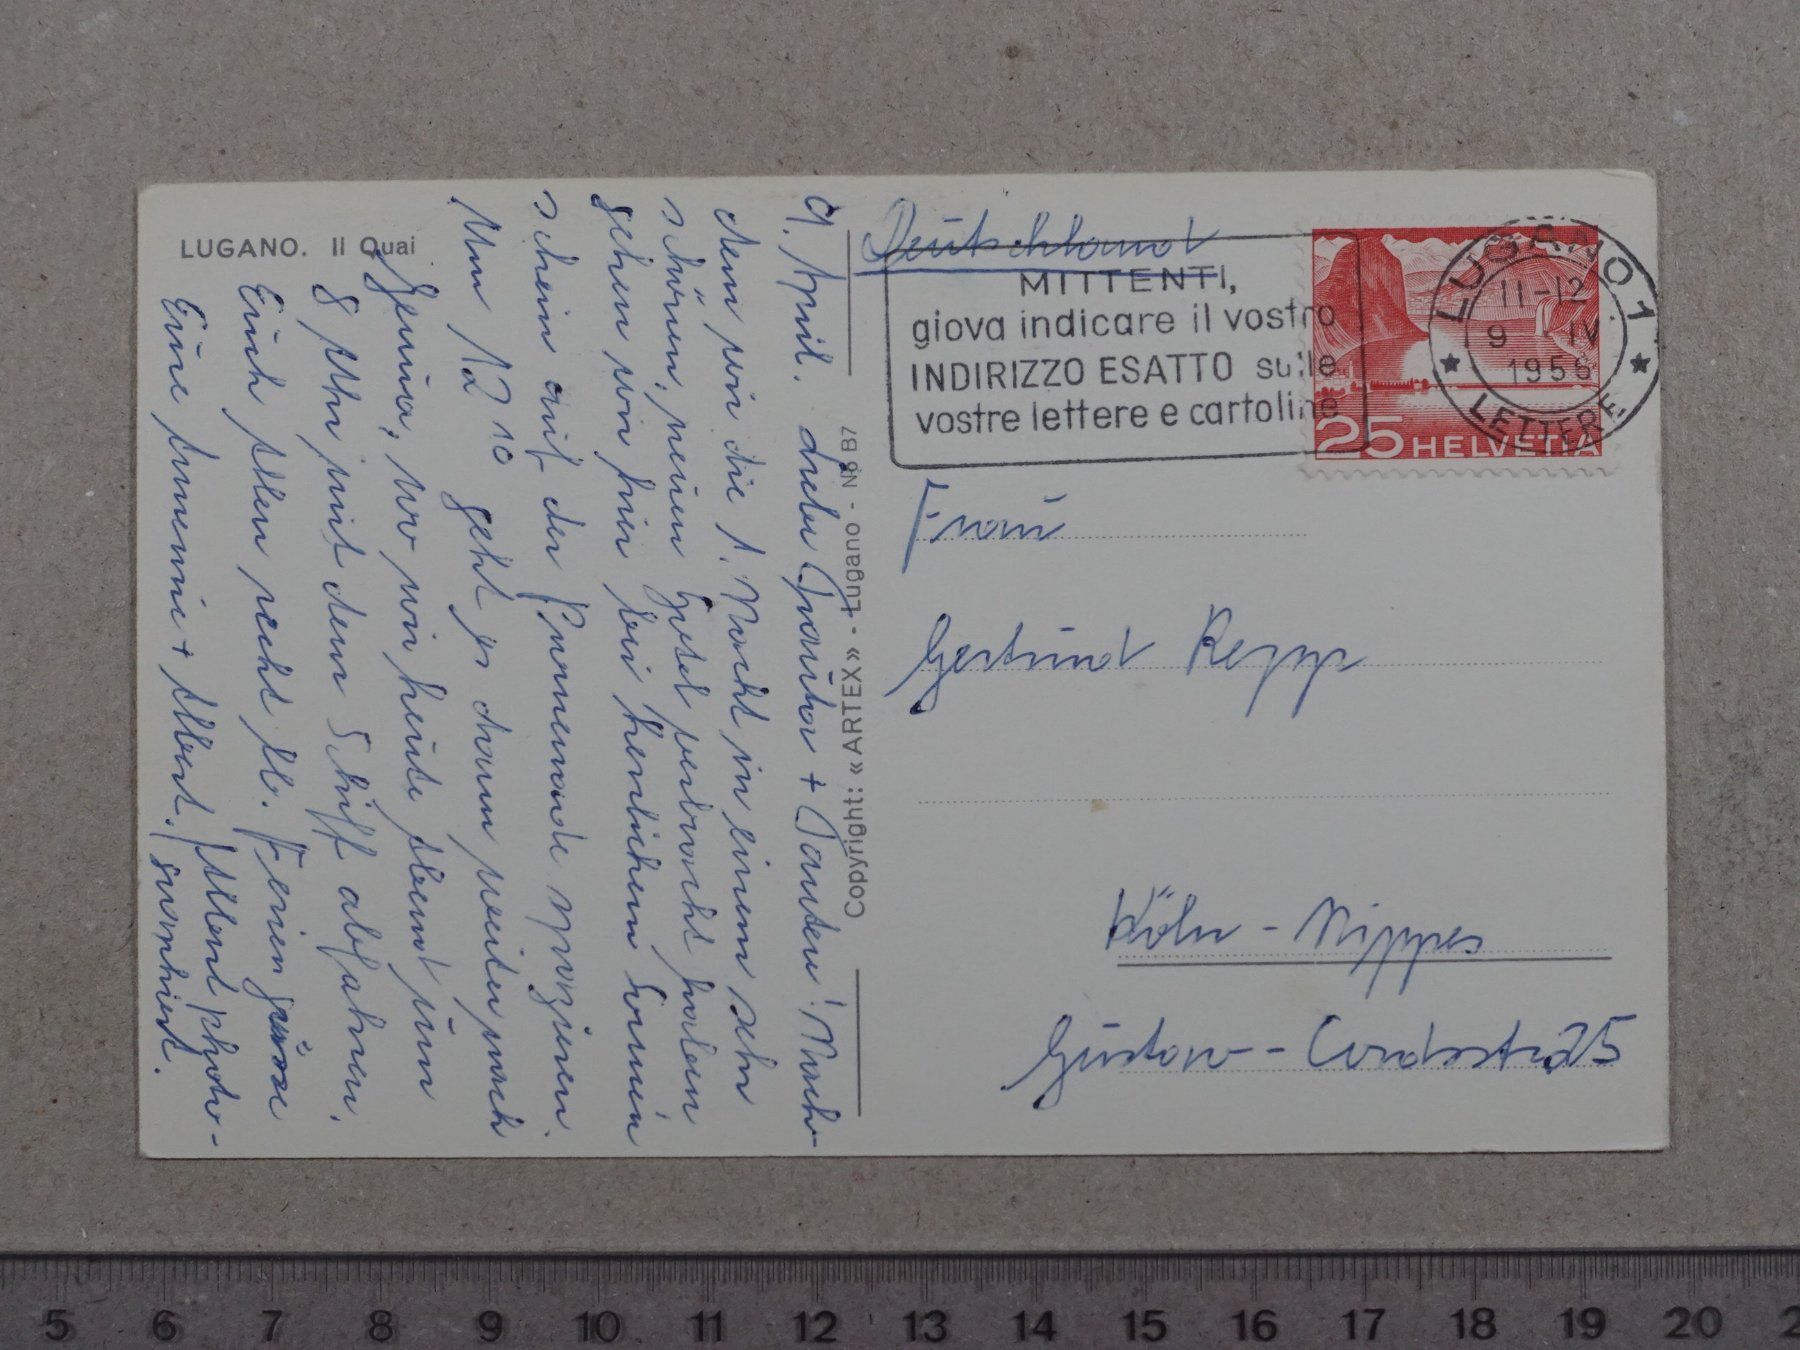 LUGANO. Il Quai
9. April. Liebe Gertrud + Tanten! Nach-
dem wir die 1. Nacht in einem sehr
schönen, neuen Hotel verbracht haben
gehen wir hier bei herrlichem Sonnen
schein auf der Promenade spazieren.
Um 12 10 geht es dann weiter nach
Genua, wo wir heute Abend um
8 Uhr mit dem Schiff abfahren.
Euch Allen recht hl. Feriengrüsse
Eure + Albert.
Copyright: «ARTEX» - Lugano - No B7
Deutschland
MITTENTI,
giova indicare il vostro
INDIRIZZO ESATTO sulle
vostre lettere e cartoline
LUGANO 1
11-12
9 IV
1956
LETTERE
25 HELVETIA
Frau
Gertrud Repp
Köln - Nippes
Gustav - Cordsstr. 25
5 6 7 8 9 10 11 12 13 14 15 16 17 18 19 20